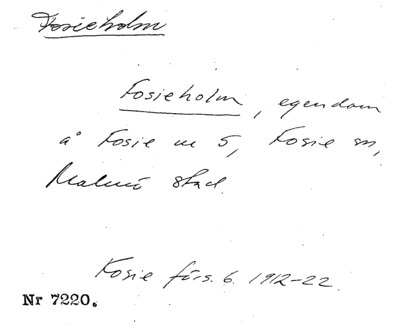 Fosieholm
Fosieholm, egendom
å Fosie nr 5, Fosie sn,
Malmö stad.
Fosie förs. b. 1912-22.
Nr 7220.